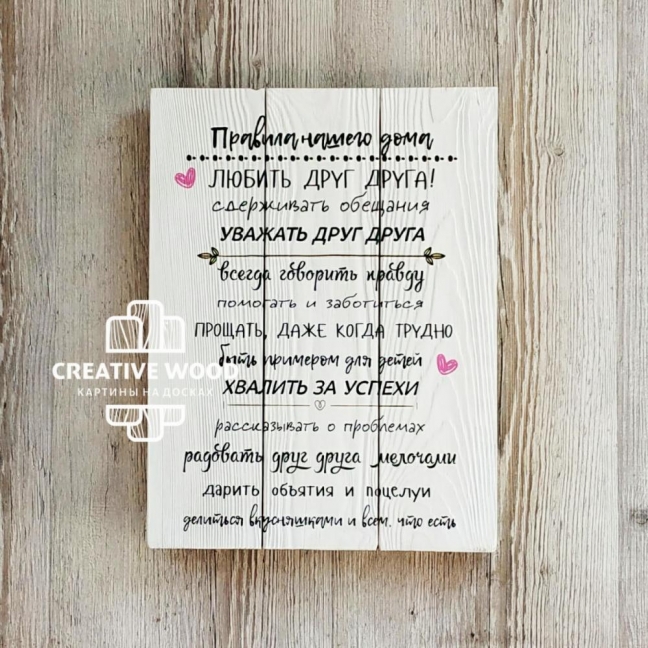 Правила нашего дома
ЛЮБИТЬ ДРУГ ДРУГА!
сдерживать обещания
УВАЖАТЬ ДРУГ ДРУГА
всегда говорить правду
помогать и заботиться
ПРОЩАТЬ, ДАЖЕ КОГДА ТРУДНО
быть примером для детей
CREATIVE WOOD
ХВАЛИТЬ ЗА УСПЕХИ
КАРТИНЫ НА ДОСКАХ
рассказывать о проблемах
радовать друг друга мелочами
дарить объятия и поцелуи
делиться вкусняшками и всем, что есть